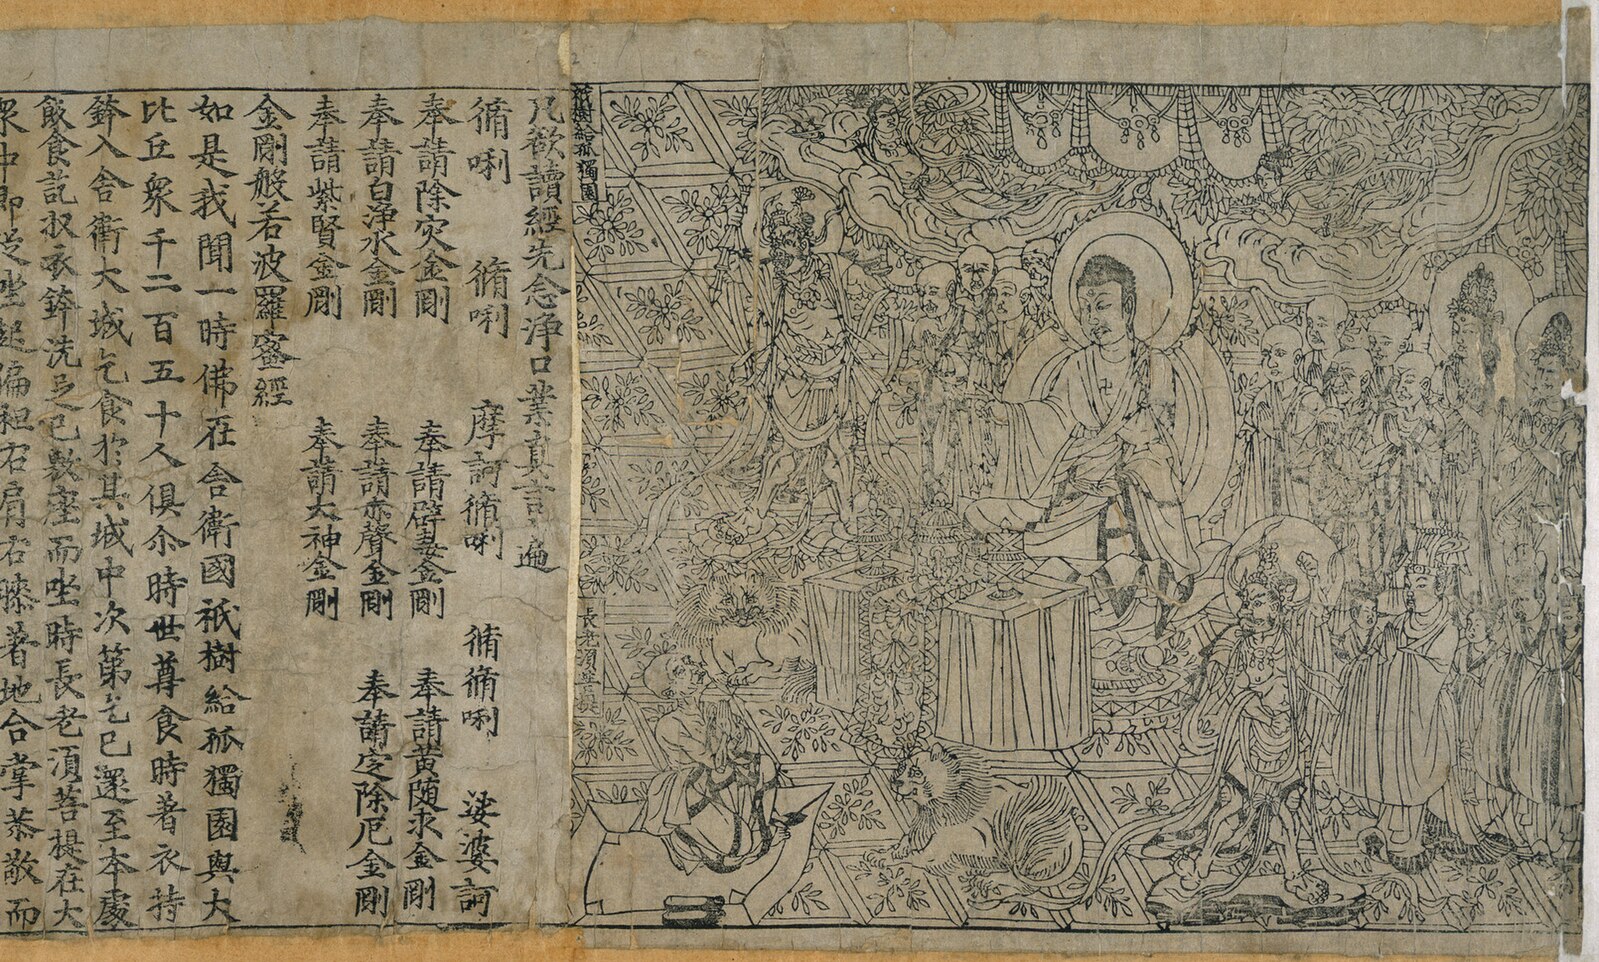 祇樹給孤獨園
長老須菩提
凡欲讀經先念淨口業真言遍
脩唎 脩唎 摩訶脩唎 脩脩唎 娑婆訶
奉請除灾金剛 奉請辟毒金剛 奉請黄随求金剛
奉請白淨水金剛 奉請赤聲金剛 奉請定除厄金剛
奉請紫賢金剛 奉請大神金剛
金剛般若波羅蜜經
如是我聞一時佛在舍衛國祇樹給孤獨園與大
比丘衆千二百五十人俱尒時世尊食時著衣持
鉢入舍衛大城乞食於其城中次第乞已還至本處
飯食訖收衣鉢洗足已敷座而坐時長老須菩提在大
衆中即從坐起偏袒右肩右膝著地合掌恭敬而